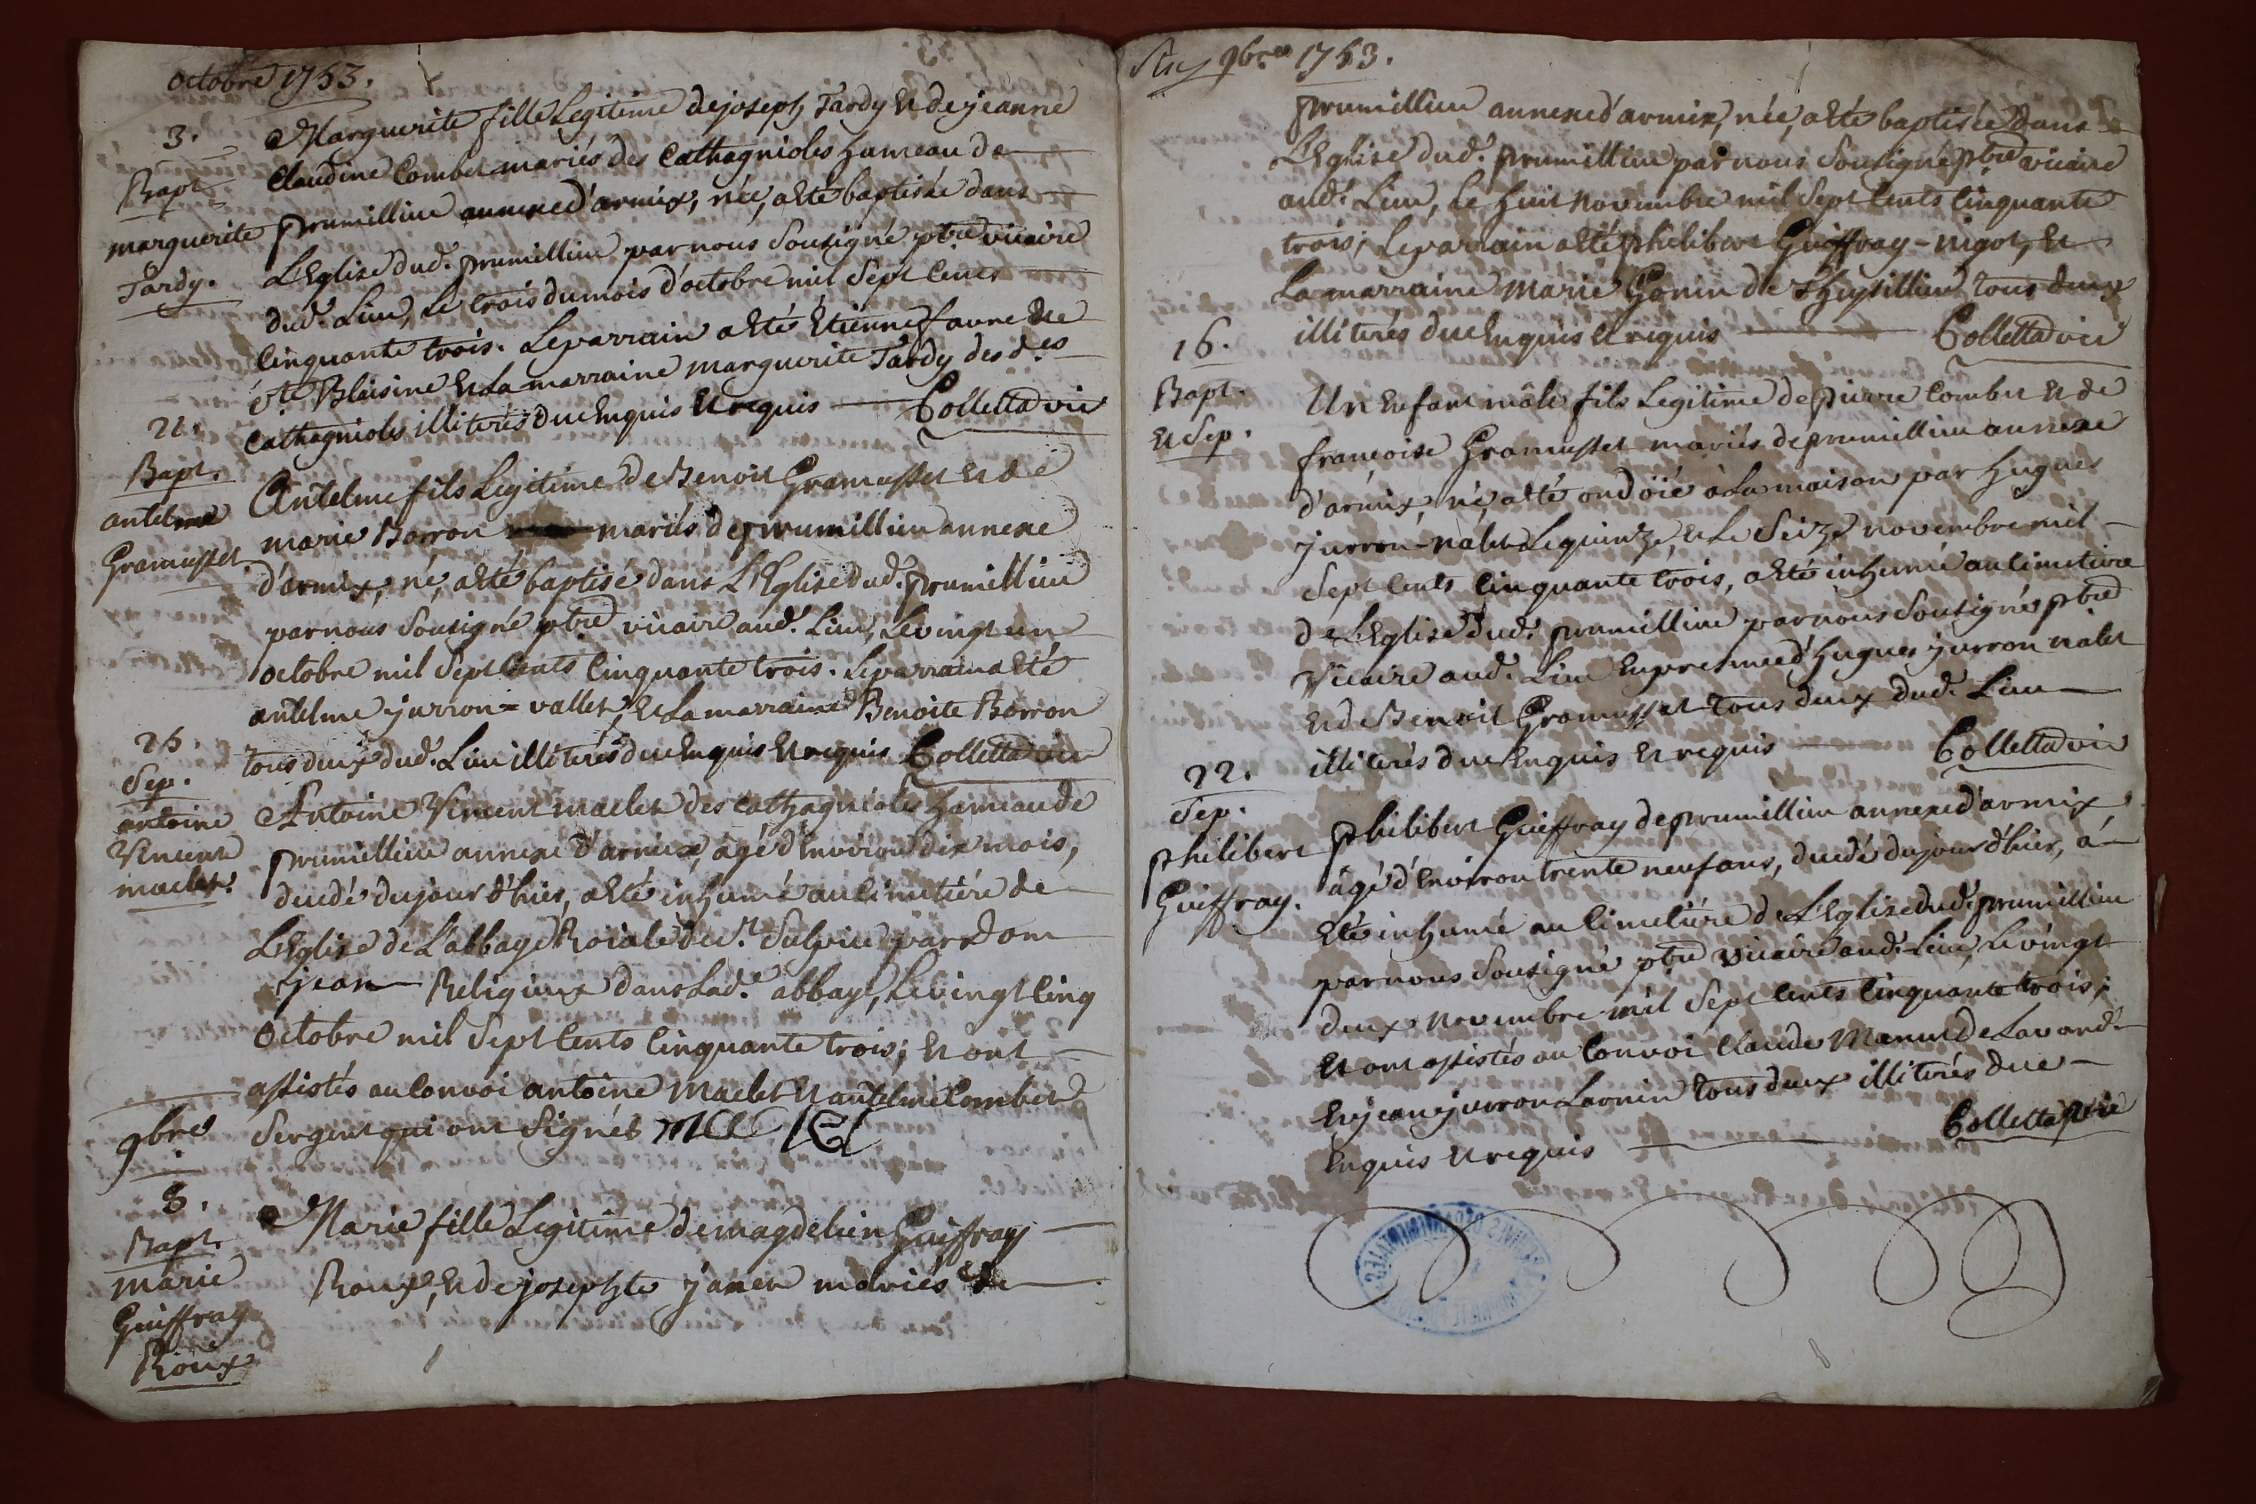 octobre 1753.
3.
Bapt.
marguerite
Tardy.
Marguerite fille Legitime de joseph Tardy et de jeanne
Claudine Combet mariés des Cathagnioles hameau de
prumillieu annexe d'armix, née, a eté baptisée dans
L'Eglise dud. prumillieu par nous Sousigné ptre vicaire
dud. Lieu, Le trois du mois d'octobre mil Sept Cents
Cinquante trois. Le parrain a eté Etienne favre de
Ste Blaisine et La marraine marguerite Tardy des d.es
Cathagnioles illiterés due Enquis et requis Colletta vic
21.
Bapt.
antelme
Gramusset.
Antelme fils Legitime de Benoit Gramusset et de
marie Borron mariés de prumillieu annexe
d'armix, né, a eté baptisé dans L'Eglise dud. prumillieu
par nous Sousigné ptre vicaire aud. Lieu, Le vingt un
octobre mil Sept Cents Cinquante trois. Le parrain a eté
antelme jurron = vallet, et La marraine Benoite Borron
tous deux dud. Lieu illiterés due Enquis et requis Colletta vic
25.
Sep.
antoine
Vincent
maclet.
Antoine Vincent maclet des Cathagnioles hameau de
prumillieu annexe d'armix, âgé d'Environ dix mois,
decedé du jour d'hier, a eté inhumé au Cimetiére de
L'Eglise de L'abbaye Roiale de St. Sulpice par Dom
jean Religieux dans Lad. abbaye, Le vingt Cinq
Octobre mil Sept Cents Cinquante trois; et ont
assistés au Convoi antoine Maclet et antelme Combet
Sergent qui ont Signés
9bre
8.
Bapt.
marie
Guiffray
Roux
Marie fille Legitime de magdelein Guiffray
Roux, et de josephte janet mariés de
9bre 1753.
prumillieu annexe d'armix, née, a eté baptisée dans
L'Eglise dud. prumillieu par nous Sousigné ptre vicaire
aud. Lieu, Le huit Novembre mil Sept Cents Cinquante
trois; Le parrain a eté philibert Guiffray - nigot, et
La marraine Marie Gonin de Thezillieu tous deux
illiterés due Enquis et requis Colletta vic
16.
Bapt.
et Sep.
Un Enfant mâle fils Legitime de pierre Combet et de
françoise Gramusset mariés de prumillieu annexe
d'armix, né, a eté ondoïé à La maison par hugues
jurron - valet Le quinze, et Le Seize novembre mil
Sept Cents Cinquante trois, a eté inhumé au Cimetiére
de L'Eglise dud. prumillieu par nous Sousigné ptre
Vicaire aud. Lieu En presence d'hugues jurron valet
et de Benoit Gramusset tous deux dud. Lieu
illiterés due Enquis et requis Colletta vic
22.
Sep.
philibert
Guiffray.
philibert Guiffray de prumillieu annexe d'armix,
âgé d'Environ trente neuf ans, decedé du jour d'hier, a
eté inhumé au Cimetiére de L'Eglise dud. prumillieu
par nous Sousigné ptre vicaire aud. Lieu, Le vingt
deux novembre mil Sept Cents Cinquante trois;
et ont assistés au Convoi Claude
et jean jurron tous deux illiterés due
Enquis et requis Colletta vic